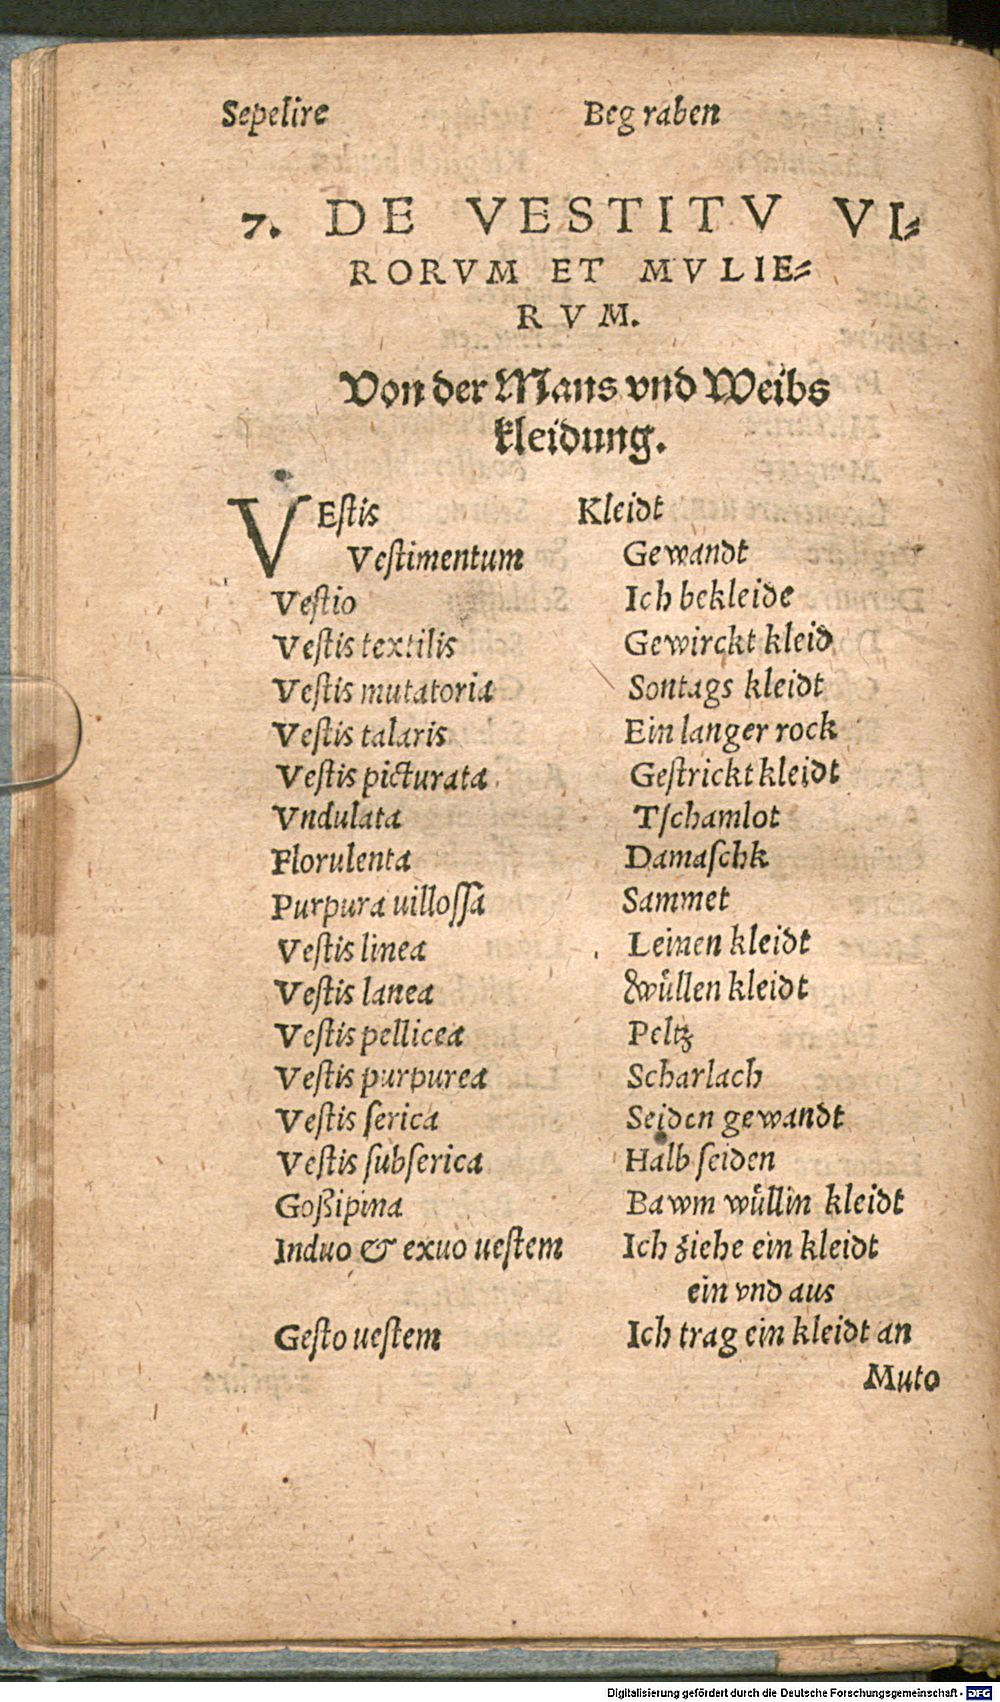 Sepelire Begraben
7. DE VESTITV VI⸗
RORVM ET MVLIE⸗
RVM.
Von der Mans vnd Weibs
kleidung.
VEstis Kleidt
Vestimentum Gewandt
Vestio Ich bekleide
Vestis textilis Gewirckt kleid
Vestis mutatoria Sontags kleidt
Vestis talaris Ein langer rock
Vestis picturata Gestrickt kleidt
Vndulata Tschamlot
Florulenta Damaschk
Purpura uillossa Sammet
Vestis linea Leinen kleidt
Vestis lanea Wüllen kleidt
Vestis pellicea Peltz
Vestis purpurea Scharlach
Vestis serica Seiden gewandt
Vestis subserica Halb seiden
Goßipina Bawm wüllin kleidt
Induo & exuo uestem Ich ziehe ein kleidt
ein vnd aus
Gesto uestem Ich trag ein kleidt an
Muto
Digitalisierung gefördert durch die Deutsche Forschungsgemeinschaft - DFG